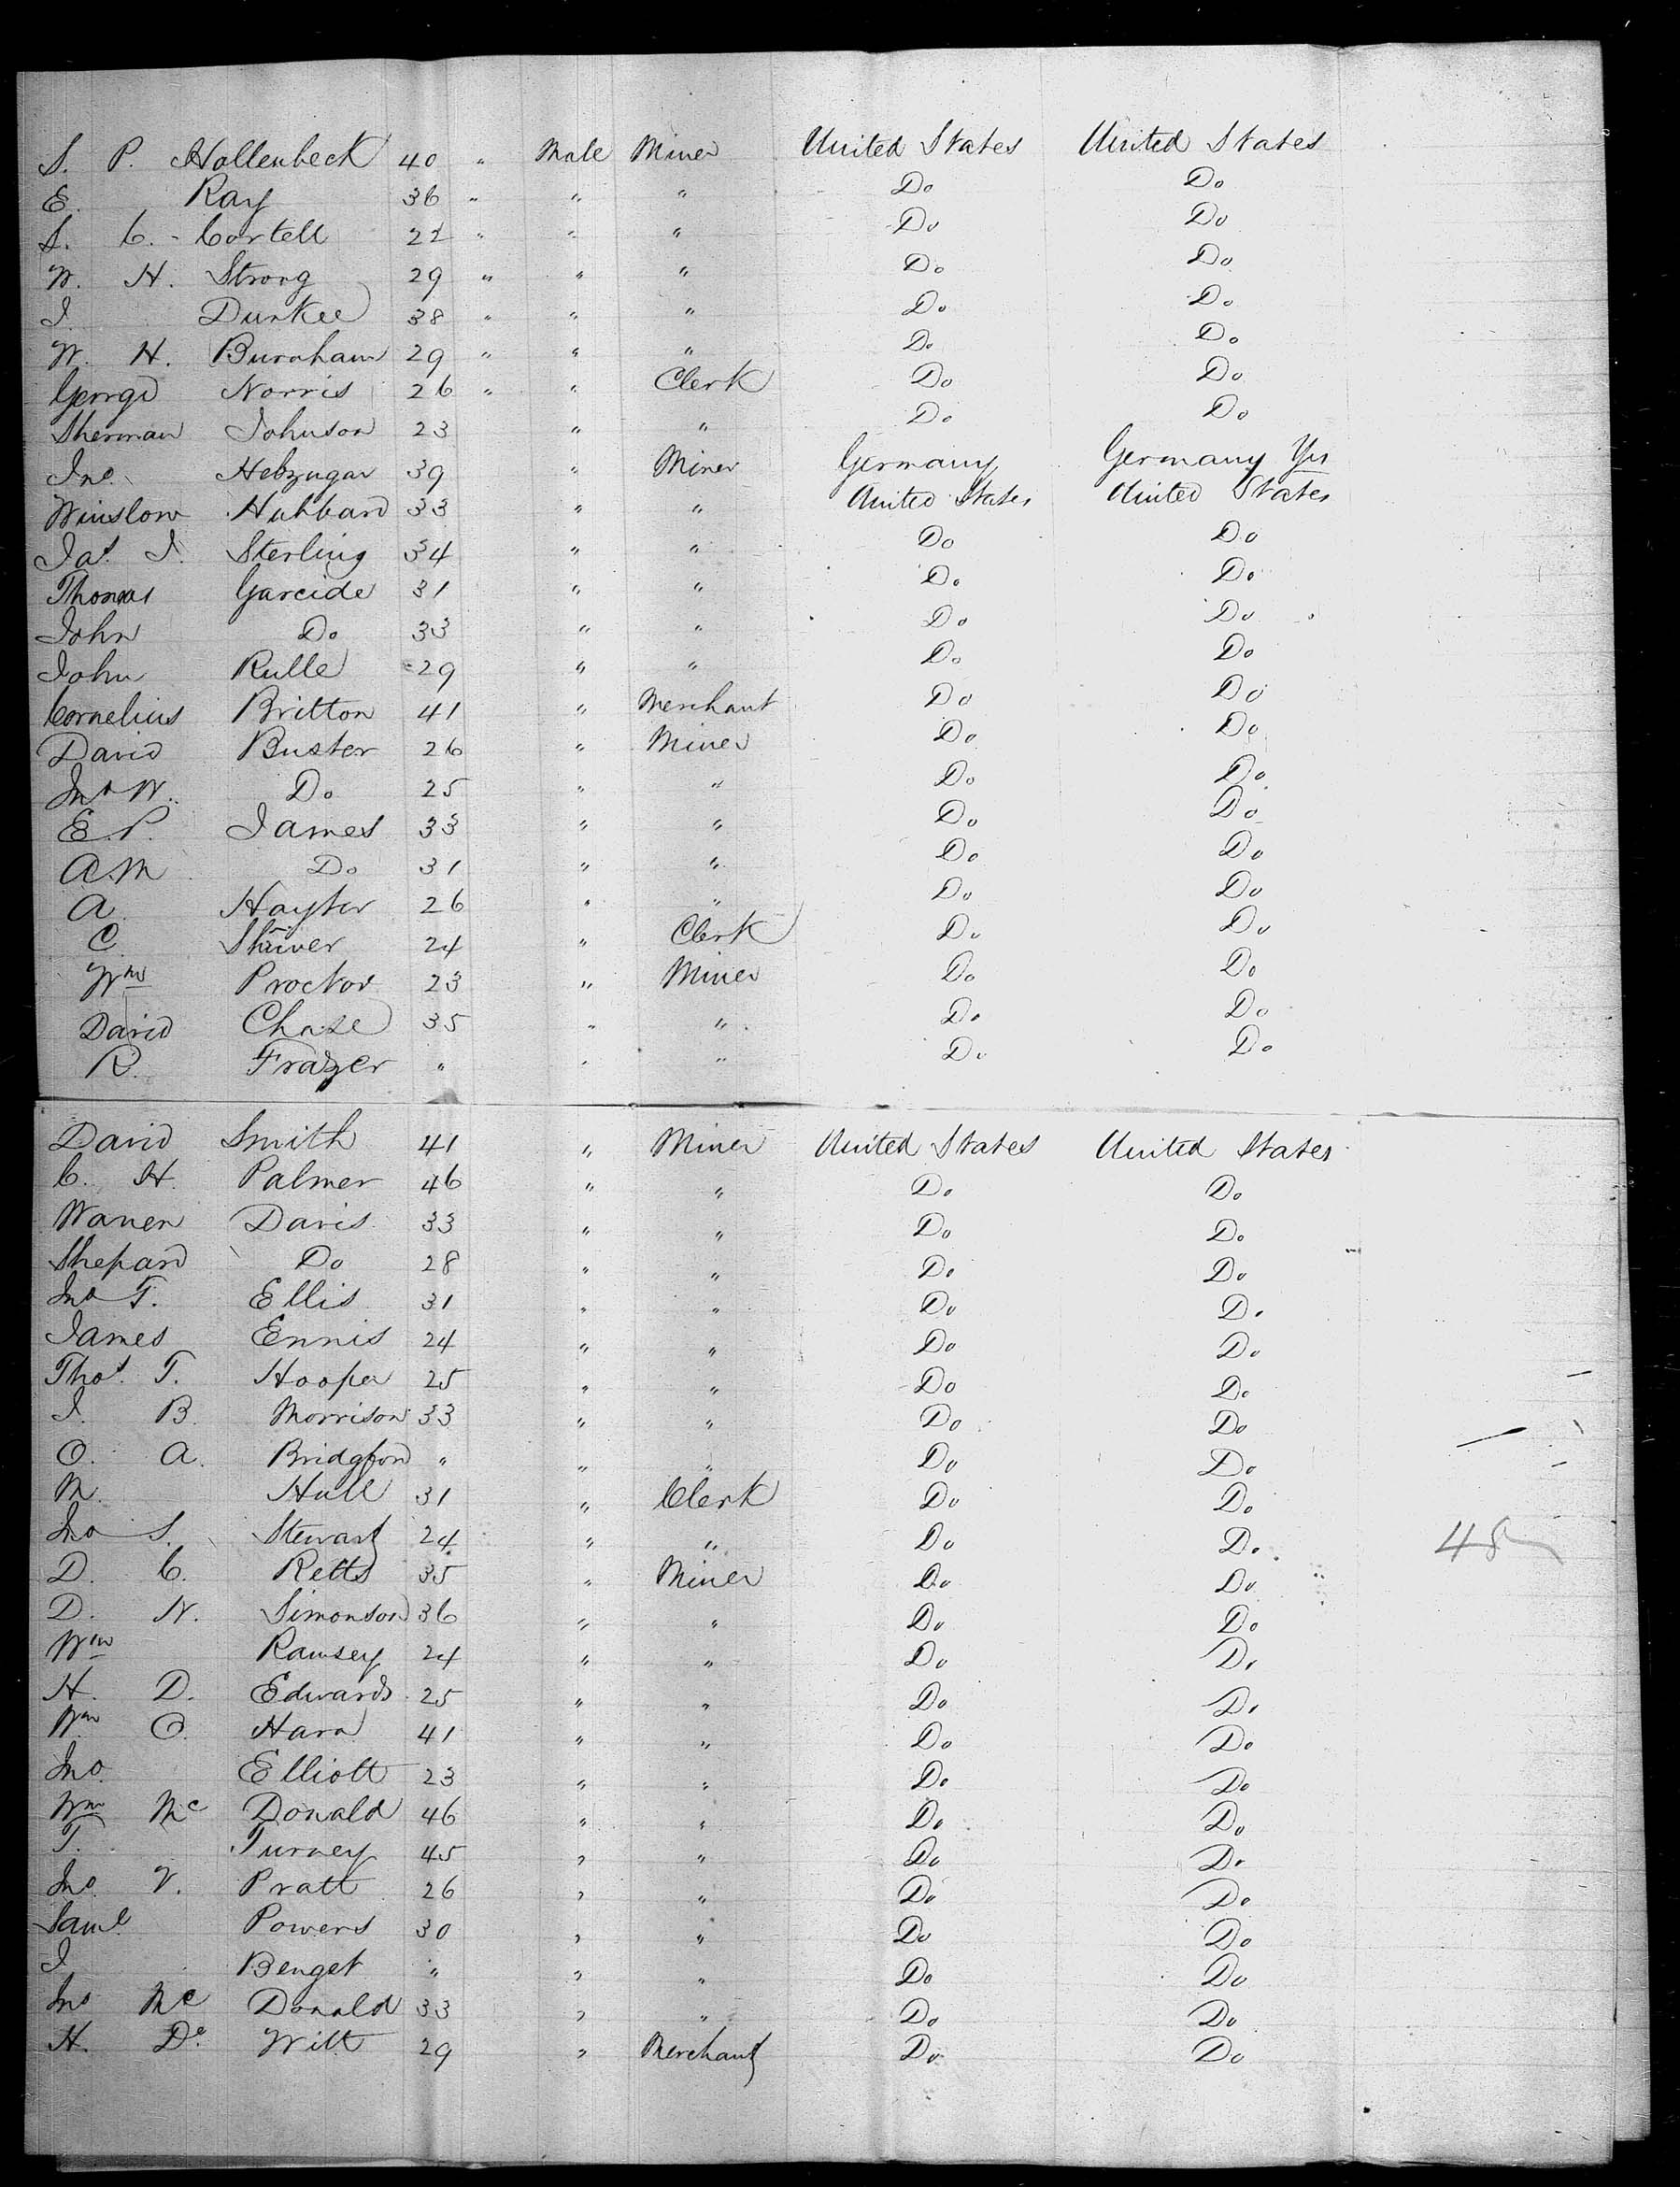 S. P. Hollenbeck 40 " Male Miner United States United States
E. Ray 36 " " " Do Do
S. C. - Cortell 22 " " " Do Do
W. H. Strong 29 " " " Do Do
I. Durkee 38 " " " Do Do
W. H. Burnham 29 " " " Do Do
George Norris 26 " " Clerk Do Do
Sherman Johnson 23 " " Do Do
Jno. 39 " Miner Germany Germany Yes
Winslow Hubbard 33 " " United States United States
Jas. I. Sterling 34 " " Do Do
Thomas Garcide 31 " " Do Do
John Do 33 " " Do Do
John Rulle 29 " " Do Do
Cornelius Britton 41 " Merchant Do Do
David Buster 26 " Miner Do Do
Jno W. Do 25 " " Do Do
E. P. James 33 " " Do Do
A. M Do 31 " " Do Do
A. Hayter 26 " " Do Do
C. Shriver 24 " Clerk Do Do
Wm Proctor 23 " Miner Do Do
David Chase 35 " " Do Do
R. Frazer " " " Do Do
David Smith 41 " Miner United States United States
C. H. Palmer 46 " " Do Do
Warren Davis 33 " " Do Do
Shepard Do 28 " " Do Do
Jno T. Ellis 31 " " Do Do
James Ennis 24 " " Do Do
Thos. T. Hooper 25 " " Do Do
I. B. Morrison 33 " " Do Do
O. A. Bridgford " " " Do Do
M. Hull 31 " Clerk Do Do
Jno S. Stewart 24 " " Do Do 48
D. C. Retts 35 " Miner Do Do
D. N. Simonson 36 " " Do Do
Wm Ramsey 24 " " Do Do
H. D. Edwards 25 " " Do Do
Wm O. Hara 41 " " Do Do
Jno. Elliott 23 " " Do Do
Wm Mc Donald 46 " " Do Do
T. Turney 45 " " Do Do
Jno. V. Pratt 26 " " Do Do
Saml. Powers 30 " " Do Do
I Benget " " " Do Do
Jno Mc Donald 33 " " Do Do
H. De. Witt 29 " Merchant Do Do